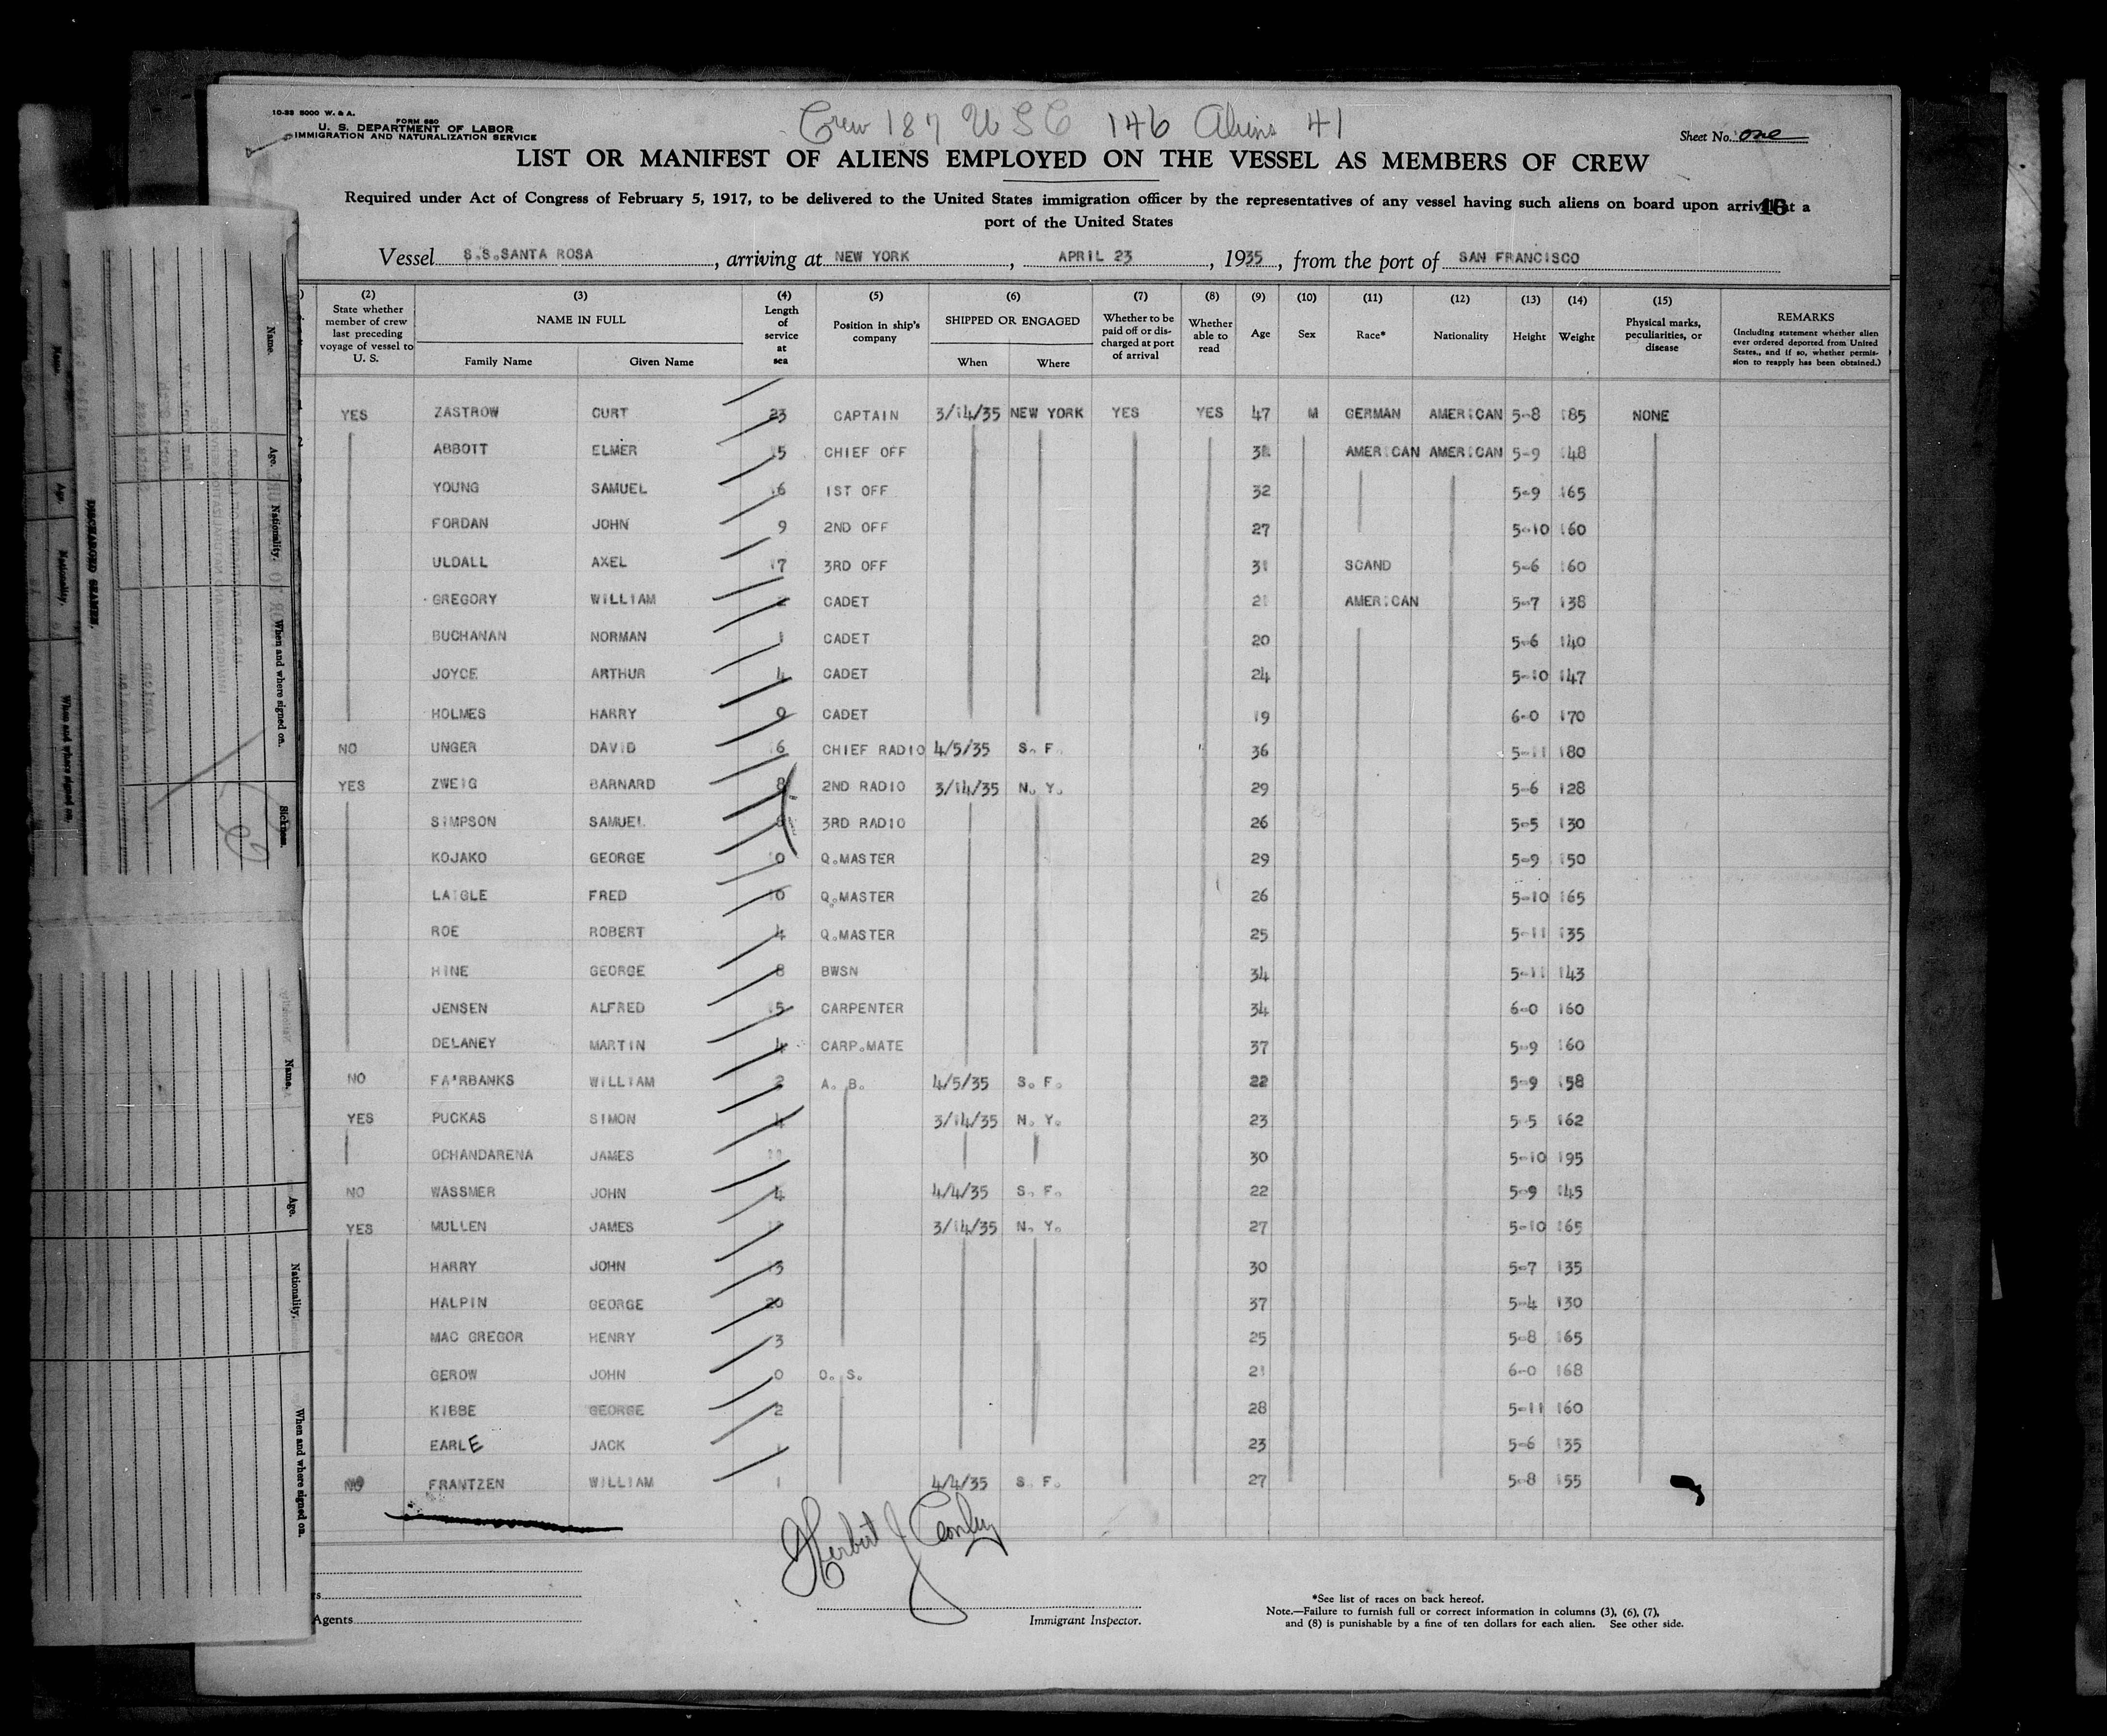 10-33 5000 W. & A.
FORM 680
U. S. DEPARTMENT OF LABOR
IMMIGRATION AND NATURALIZATION SERVICE
Crew 187 USC 146 Aliens 41
Sheet No. one
LIST OR MANIFEST OF ALIENS EMPLOYED ON THE VESSEL AS MEMBERS OF CREW
Required under Act of Congress of February 5, 1917, to be delivered to the United States immigration officer by the representatives of any vessel having such aliens on board upon arrival at a
16
port of the United States
Vessel S.S.SANTA ROSA, arriving at NEW YORK, APRIL 23, 1935, from the port of SAN FRANCISCO
(2) (3) (4) (5) (6) (7) (8) (9) (10) (11) (12) (13) (14) (15)
State whether member of crew last preceding voyage of vessel to U. S.
NAME IN FULL
Family Name
Given Name
Length of service at sea
Position in ship's company
SHIPPED OR ENGAGED
When
Where
Whether to be paid off or discharged at port of arrival
Whether able to read
Age
Sex
Race*
Nationality
Height
Weight
Physical marks, peculiarities, or disease
REMARKS
(Including statement whether alien ever ordered deported from United States, and if so, whether permission to reapply has been obtained.)
YES ZASTROW CURT 23 CAPTAIN 3/14/35 NEW YORK YES YES 47 M GERMAN AMERICAN 5-8 185 NONE
ABBOTT ELMER 15 CHIEF OFF AMERICAN AMERICAN 5-9 148
YOUNG SAMUEL 16 1ST OFF 32 5-9 165
FORDAN JOHN 9 2ND OFF 27 5-10 160
ULDALL AXEL 17 3RD OFF 31 SCAND 5-6 160
GREGORY WILLIAM 2 CADET 21 AMERICAN 5-7 138
BUCHANAN NORMAN 1 CADET 20 5-6 140
JOYCE ARTHUR 4 CADET 24 5-10 147
HOLMES HARRY 9 CADET 19 6-0 170
NO UNGER DAVID 16 CHIEF RADIO 4/5/35 S. F. 36 5-11 180
YES ZWEIG BARNARD 8 2ND RADIO 3/14/35 N. Y. 29 5-6 128
SIMPSON SAMUEL 3RD RADIO 26 5-5 130
KOJAKO GEORGE 10 Q.MASTER 29 5-9 150
LAIGLE FRED 10 Q.MASTER 26 5-10 165
ROE ROBERT 4 Q.MASTER 25 5-11 135
HINE GEORGE 8 BWSN 34 5-11 143
JENSEN ALFRED 15 CARPENTER 34 6-0 160
DELANEY MARTIN 4 CARP.MATE 37 5-9 160
NO FAIRBANKS WILLIAM 2 A. B. 4/5/35 S. F. 22 5-9 158
YES PUCKAS SIMON 4 3/14/35 N. Y. 23 5-5 162
OCHANDARENA JAMES 11 30 5-10 195
NO WASSMER JOHN 4 4/4/35 S. F. 22 5-9 145
YES MULLEN JAMES 3/14/35 N. Y. 27 5-10 165
HARRY JOHN 13 30 5-7 135
HALPIN GEORGE 20 37 5-4 130
MAC GREGOR HENRY 3 25 5-8 165
GEROW JOHN 0 O. S. 21 6-0 168
KIBBE GEORGE 2 28 5-11 160
EARLE JACK 23 5-6 135
NO FRANTZEN WILLIAM 1 4/4/35 S. F. 27 5-8 155
Herbert J Conley
Agents
Immigrant Inspector.
*See list of races on back hereof.
Note.—Failure to furnish full or correct information in columns (3), (6), (7),
and (8) is punishable by a fine of ten dollars for each alien. See other side.
Name.
Age.
Nationality.
When and where signed on.
Sickness.
Name.
Age.
Nationality.
When and where signed on.
DISCHARGED SEAMEN.
Name.
Age.
Nationality.
When and where signed on.